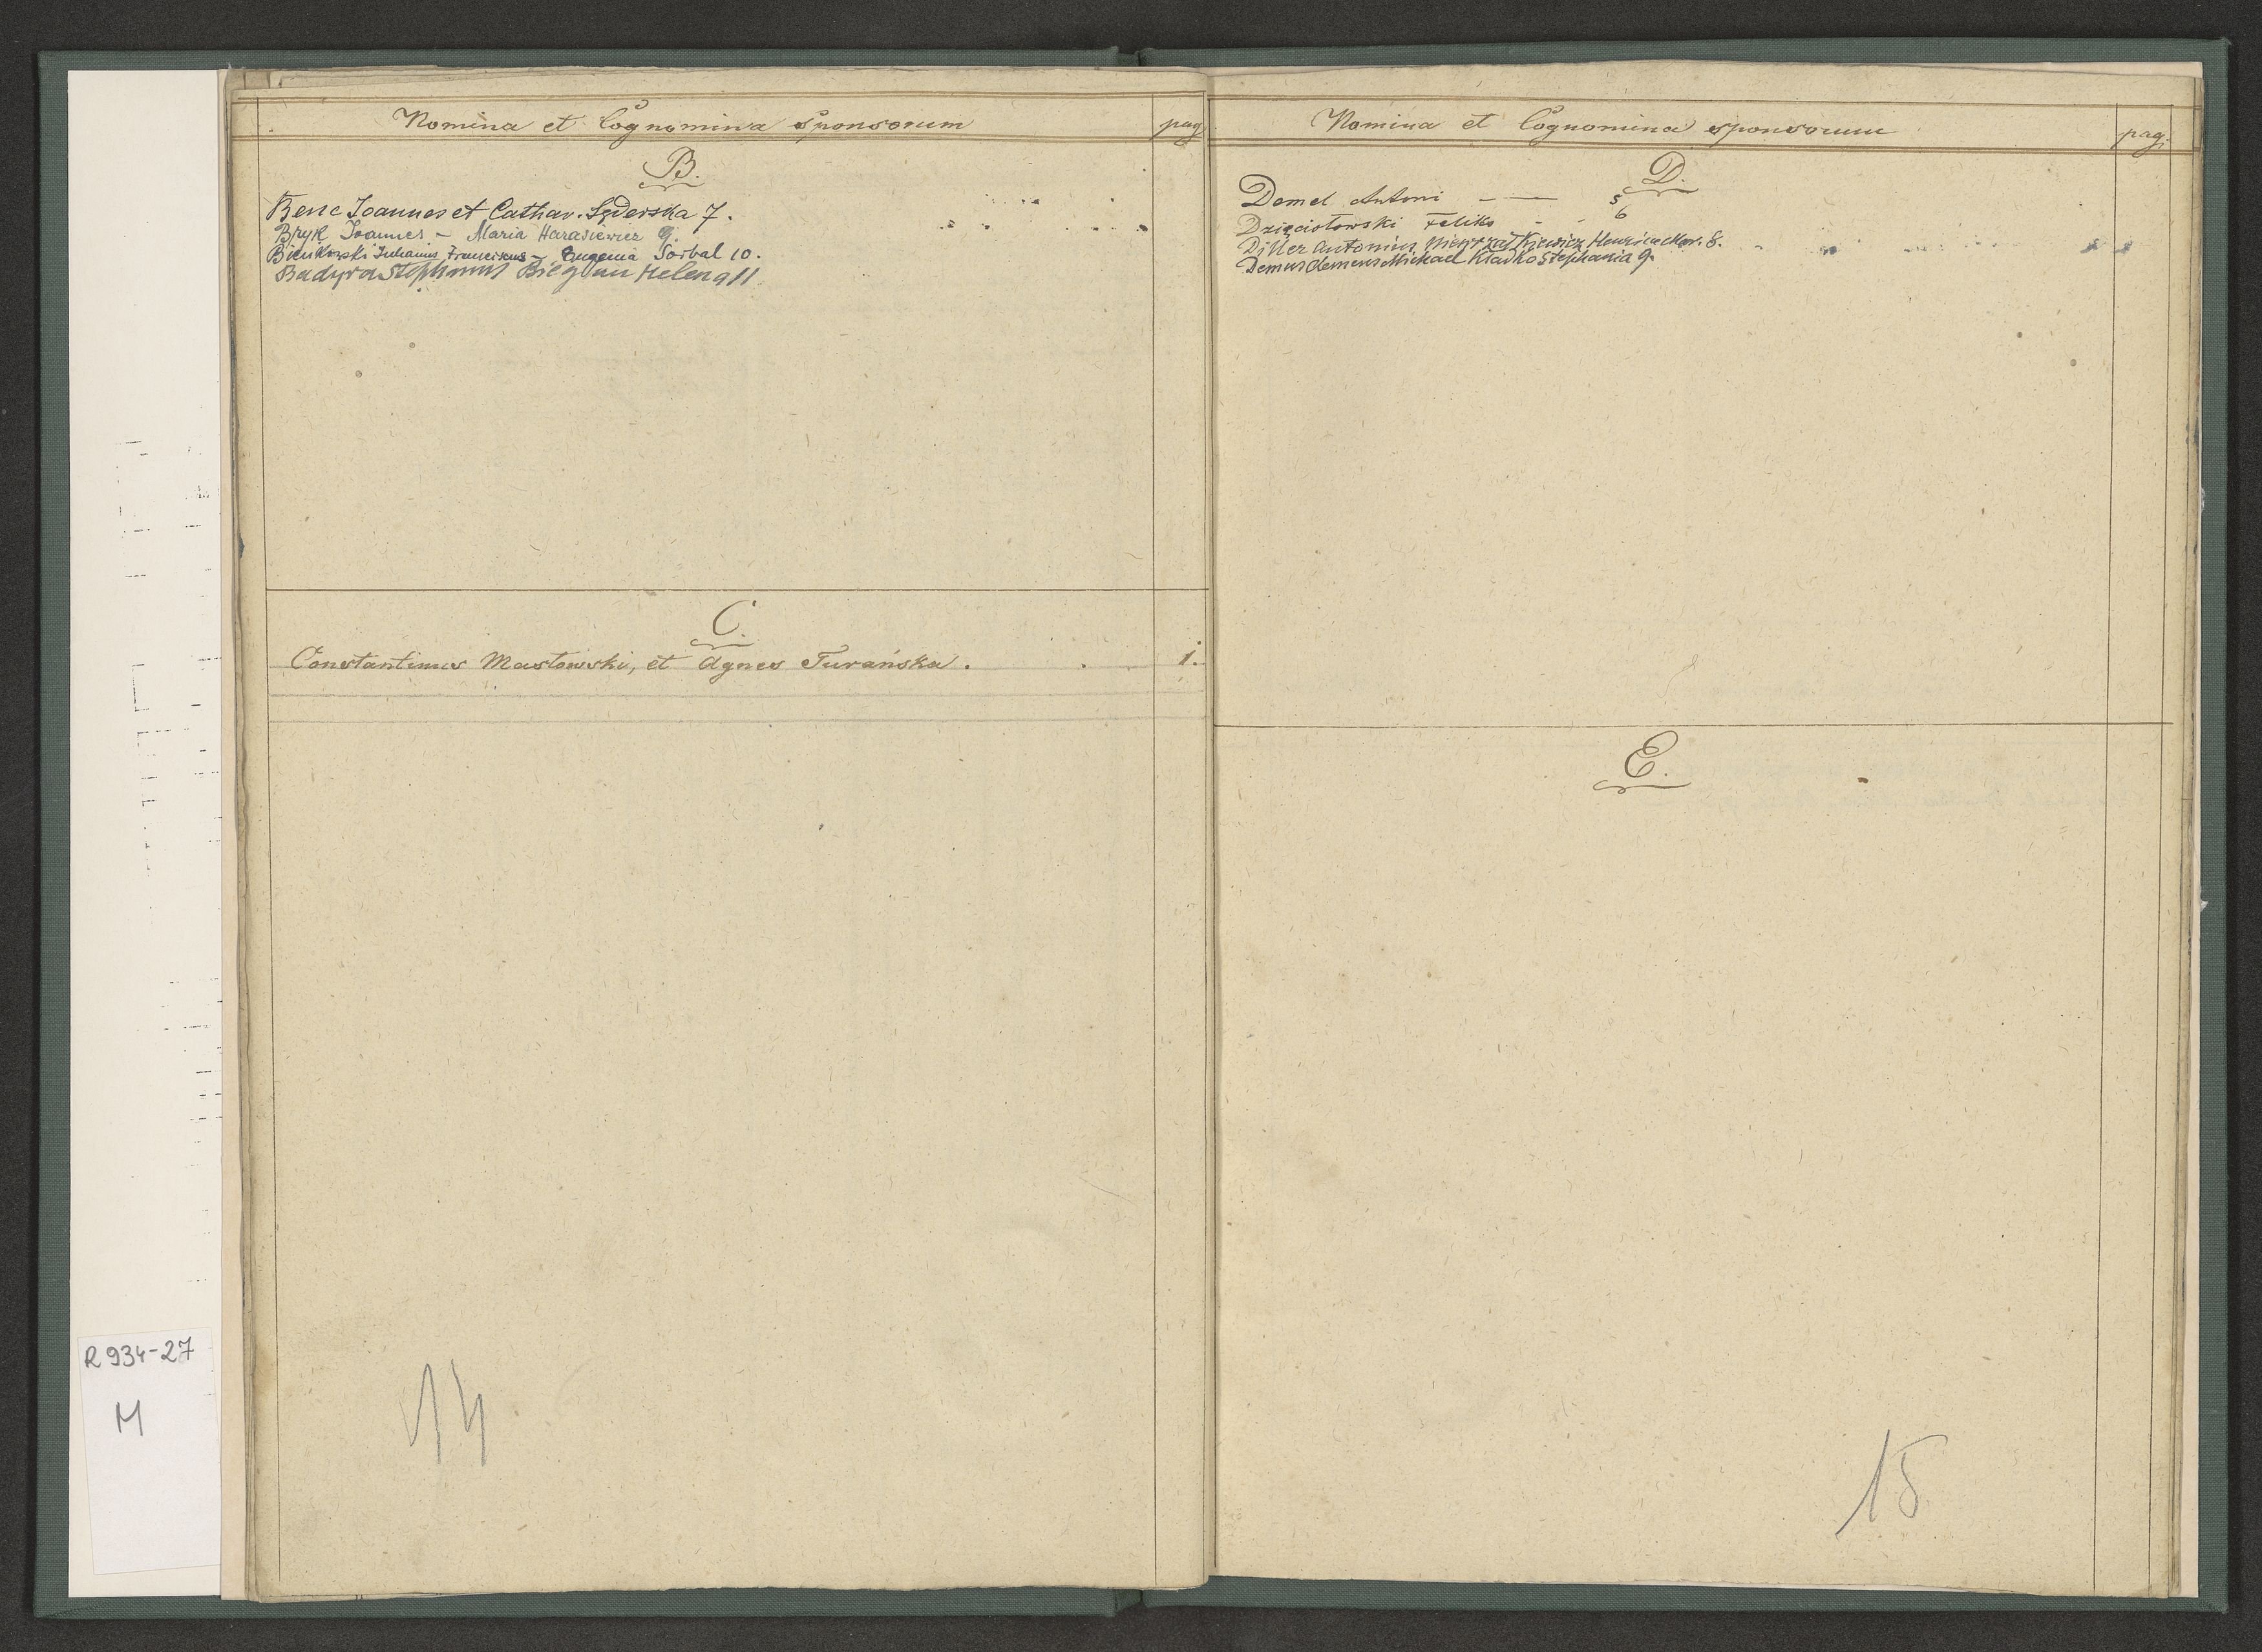 Nomina et Cognomina Sponsorum pag
B.
Benc Joannes et Cathar. Sęderska 7.
Bryk Joannes – Maria Harasiewicz 9.
Bieńkowski Julianus Franciscus – Eugenia Sorbal 10.
Badyra Stephanus Biegun Helena 11.
C.
Constantinus Masłowski, et Agnes Turańska. 1.
14
R 934-27
M
Nomina et Cognomina sponsorum pag.
D.
Domel Antoni — — 5
Dzięciołowski Feliks - - 6
Diller Antonius Henrica Mar. 8.
Demus Clemens Michael Kladko Stephania 9.
E.
15